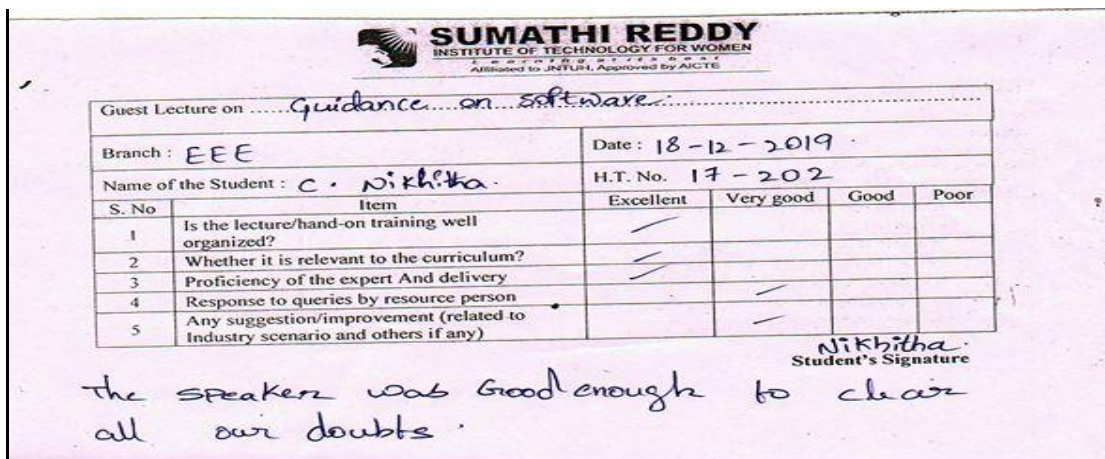 SUMATHI REDDY
INSTITUTE OF TECHNOLOGY FOR WOMEN
Learning at its best
Affiliated to JNTUH, Approved by AICTE
Guest Lecture on ...... Guidance on software
Branch : EEE Date : 18-12-2019
Name of the Student : C. Nikhitha. H.T. No. 17-202
S. No Item Excellent Very good Good Poor
1 Is the lecture/hand-on training well
organized?
2 Whether it is relevant to the curriculum?
3 Proficiency of the expert And delivery
4 Response to queries by resource person
5 Any suggestion/improvement (related to
Industry scenario and others if any)
Nikhitha.
Student's Signature
The speaker was Good enough to clear
all our doubts.